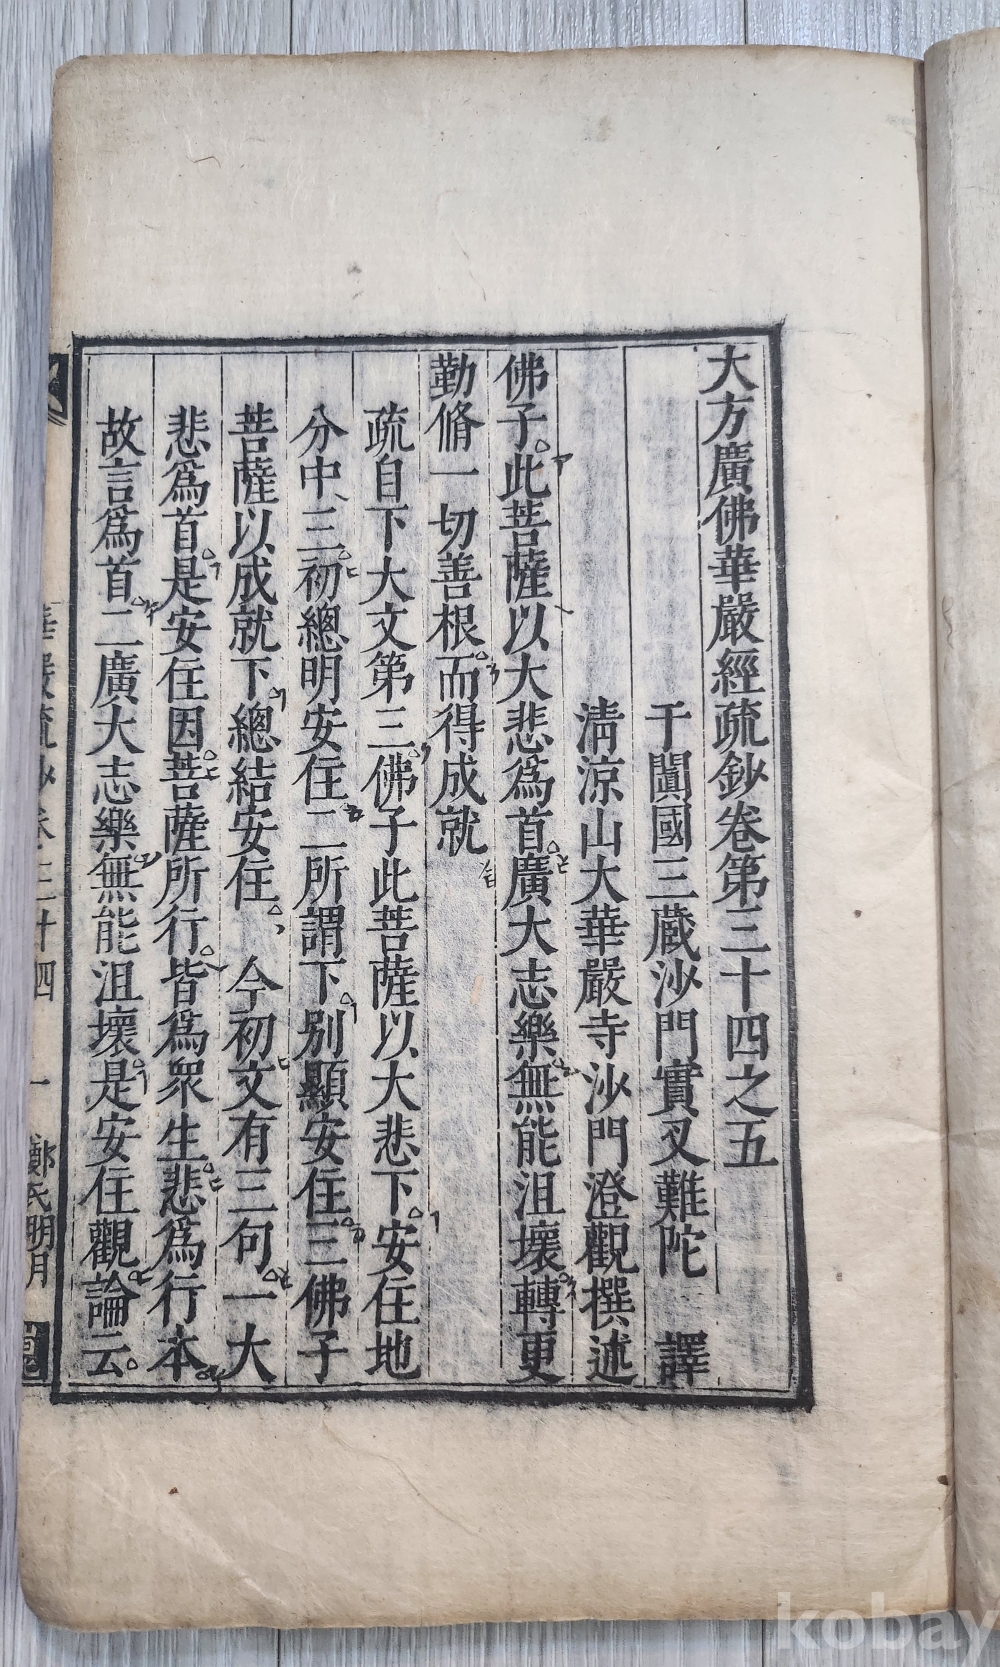 大方廣佛華嚴經疏鈔卷第三十四之五
于闐國三藏沙門實叉難陀 譯
清涼山大華嚴寺沙門澄觀撰述
佛子此菩薩以大悲爲首廣大志樂無能沮壞轉更
勤脩一切善根而得成就
疏自下大文第三佛子此菩薩以大悲下安住地
分中三初總明安住二所謂下別顯安住三佛子
菩薩以成就下總結安住、今初文有三句一大
悲爲首是安住因菩薩所行皆爲衆生悲爲行本
故言爲首二廣大志樂無能沮壞是安住觀論云
華嚴疏鈔卷三十四 一 鄭氏明月
kobay